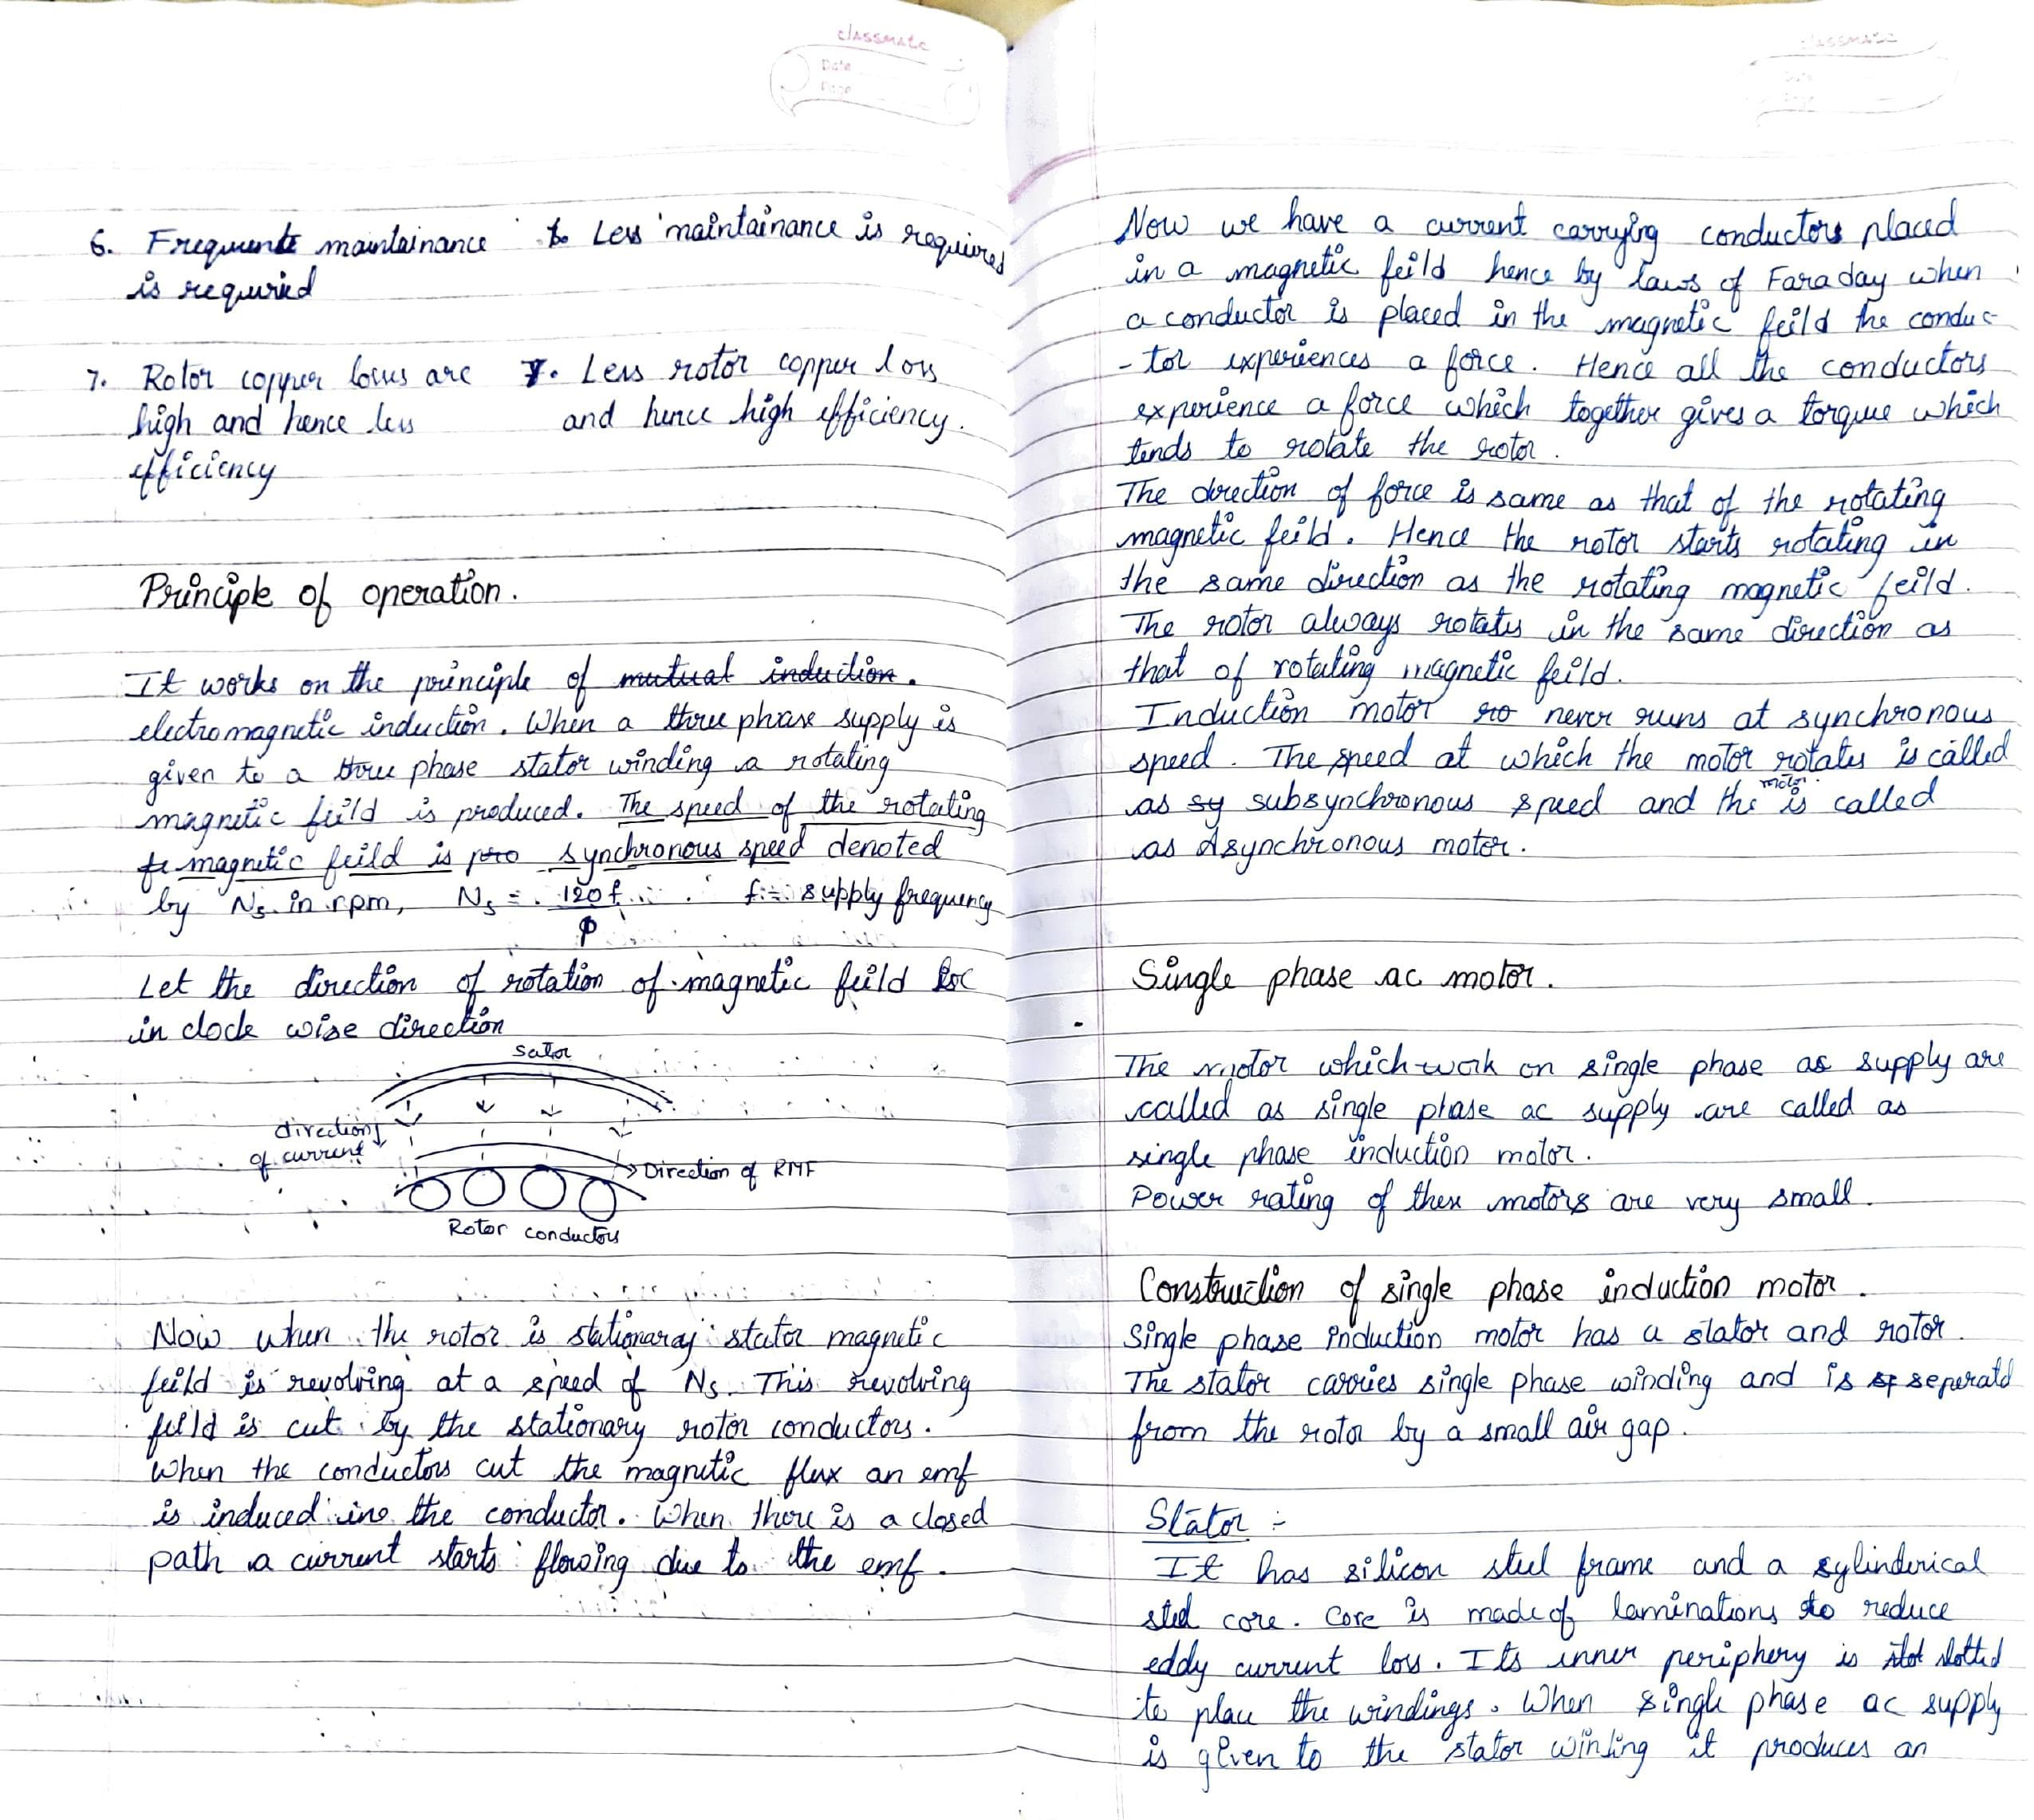 classmate
Date
Page
6. Frequente maintainance 6. Less maintainance is required
is required
7. Rotor copper losses are 7. Less rotor copper loss
high and hence less and hence high efficiency.
efficiency
Principle of operation.
It works on the principle of mutual induction.
electromagnetic induction. When a three phase supply is
given to a three phase stator winding a rotating
magnetic feild is produced. The speed of the rotating
fe magnetic feild is pro synchronous speed denoted
by Ns in rpm, Ns = 120f f = supply frequency
P
Let the direction of rotation of magnetic feild be
in clock wise direction
sator
direction
of current
Direction of RMF
Rotor conductors
Now when the rotor is stationaray stator magnetic
feild is revolving at a speed of Ns. This revolving
feild is cut by the stationary rotor conductors.
When the conductors cut the magnetic flux an emf
is induced ine the conductor. When there is a closed
path a current starts flowing due to the emf.
classmate
Date
Page
Now we have a current carrying conductors placed
in a magnetic feild hence by laws of Faraday when
a conductor is placed in the magnetic feild the conduc-
-tor experiences a force. Hence all the conductors
experience a force which together gives a torque which
tends to rotate the rotor.
The direction of force is same as that of the rotating
magnetic feild. Hence the rotor starts rotating in
the same direction as the rotating magnetic feild.
The rotor always rotates in the same direction as
that of rotating magnetic feild.
Induction motor ro never runs at synchronous
speed. The speed at which the motor rotates is called
as sy subsynchronous speed and the motor is called
as Asynchronous motor.
Single phase ac motor.
The motor which work on single phase as supply are
called as single phase ac supply are called as
single phase induction motor.
Power rating of these motors are very small.
Construction of single phase induction motor.
Single phase induction motor has a stator and rotor.
The stator carries single phase winding and is sp seperatd
from the rotor by a small air gap.
Stator :-
It has silicon steel frame and a sylinderical
steel core. Core is made of laminations to reduce
eddy current loss. Its inner periphery is slot slotted
to place the windings. When single phase ac supply
is given to the stator winding it produces an